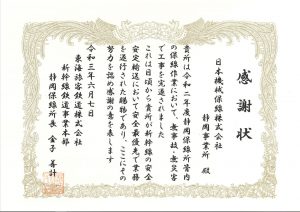 感謝状
日本機械保線株式会社
静岡事業所 殿
貴所は令和二年度静岡保線所管内
の保線作業において、無事故、無災害
で工事を完遂されました
これは日頃から貴所が新幹線の安全
安定輸送において安全最優先で業務
を遂行された賜物であり、ここにその
努力を認め感謝の意を表します
令和三年六月七日
東海旅客鉄道株式会社
新幹線鉄道事業本部
静岡保線所長 金子 善計